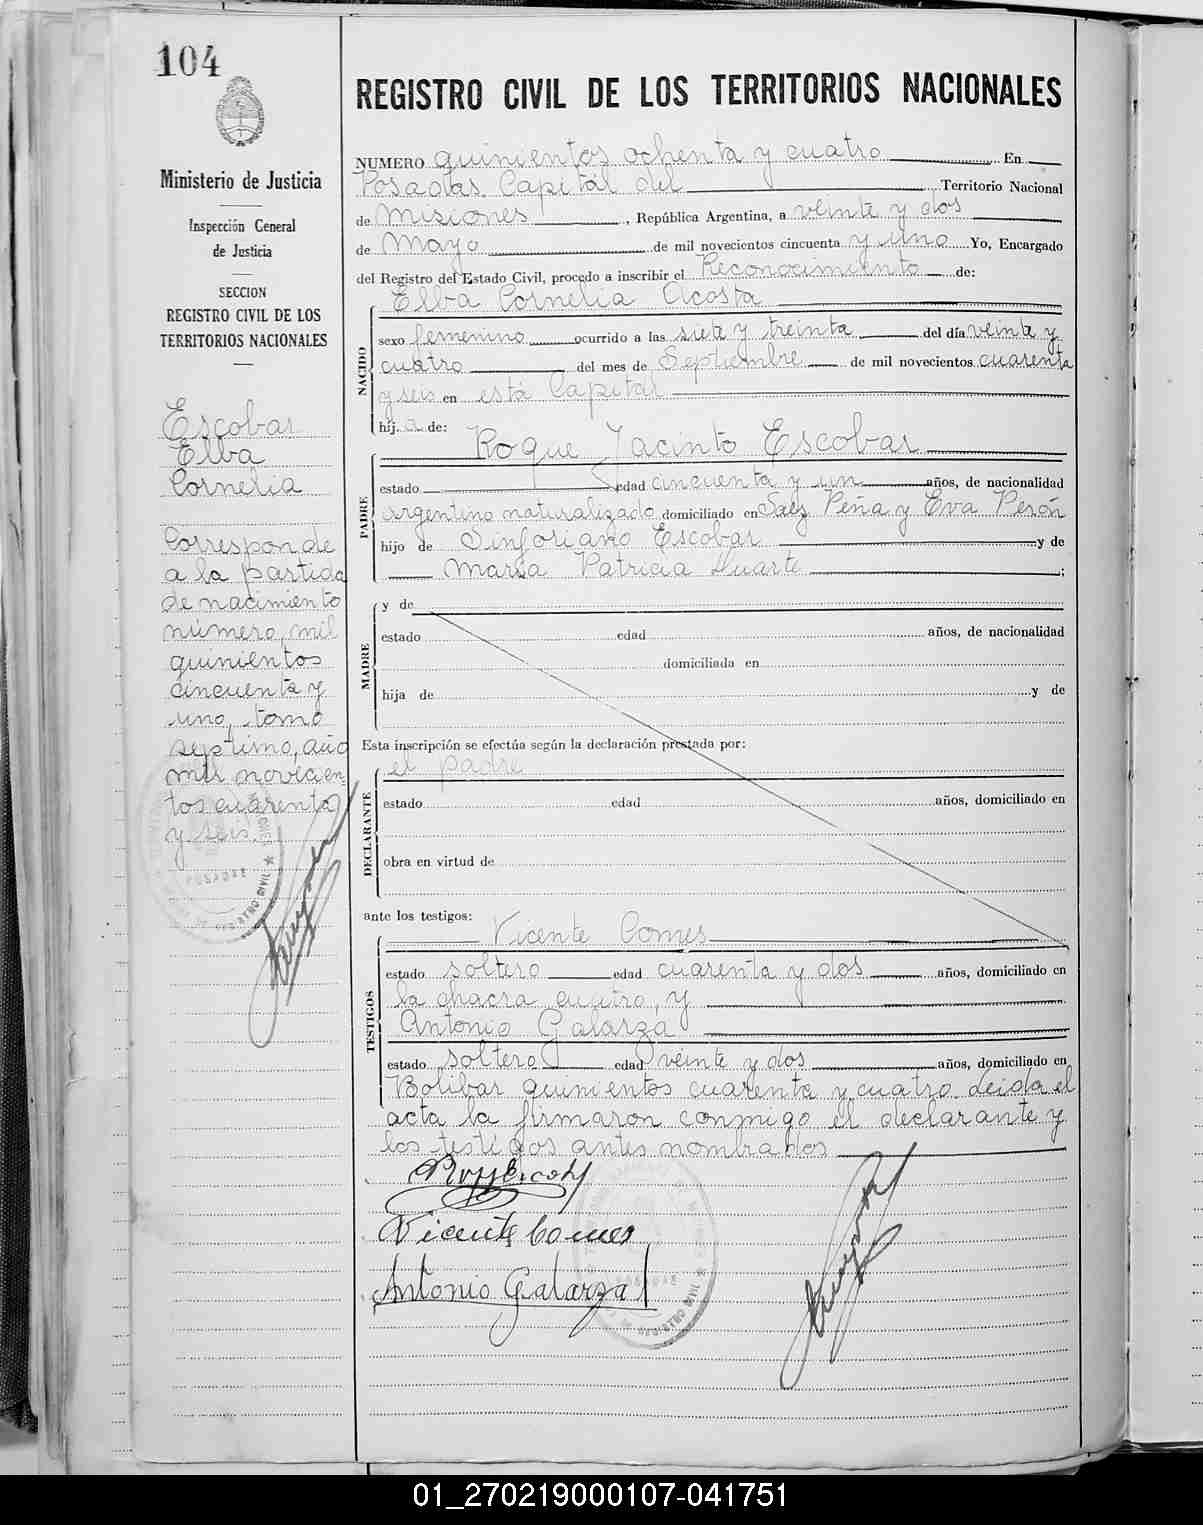 104
Ministerio de Justicia
Inspección General
de Justicia
SECCION
REGISTRO CIVIL DE LOS
TERRITORIOS NACIONALES
Escobar
Elba
Cornelia
Corresponde
a la partida
de nacimiento
número, mil
quinientos
cincuenta y
uno, tomo
septimo, año
mil novecien
tos cuarenta
y seis.
POSADAS
REGISTRO CIVIL
REGISTRO CIVIL DE LOS TERRITORIOS NACIONALES
NUMERO quinientos ochenta y cuatro En
Posadas Capital del Territorio Nacional
de Misiones, República Argentina, a veinte y dos
de Mayo de mil novecientos cincuenta y uno Yo, Encargado
del Registro del Estado Civil, procedo a inscribir el Reconocimiento de:
Elba Cornelia Acosta
NACIDO
sexo femenino ocurrido a las siete y treinta del día veinte y
cuatro del mes de Septiembre de mil novecientos cuarenta
y seis en está Capital
hij a de:
Roque Jacinto Escobar
PADRE
estado edad cincuenta y un años, de nacionalidad
argentino naturalizado domiciliado en Saez Peña y Eva Perón
hijo de Sinforiano Escobar y de
Maria Patricia Duarte;
MADRE
y de
estado edad años, de nacionalidad
domiciliada en
hija de y de
Esta inscripción se efectúa según la declaración prestada por:
el padre
DECLARANTE
estado edad años, domiciliado en
obra en virtud de
ante los testigos:
Vicente Comes
TESTIGOS
estado soltero edad cuarenta y dos años, domiciliado en
la chacra cuatro, y
Antonio Galarza
estado soltero edad veinte y dos años, domiciliado en
Bolibar quinientos cuarenta y cuatro. Leida el
acta la firmaron conmigo el declarante y
los testigos antes nombrados
Vicente Comes
Antonio Galarza
POSADAS
REGISTRO CIVIL
01_270219000107-041751